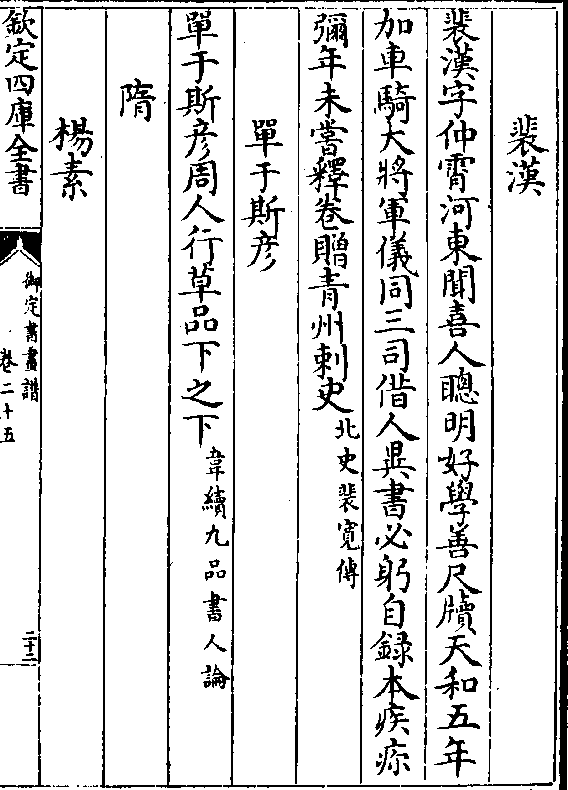 裴漢
裴漢字仲霄河東聞喜人聰明好學善尺牘天和五年
加車騎大將軍儀同三司借人異書必躬自錄本疾疹
彌年未嘗釋卷贈青州刺史北史裴寛傳
單于斯彦
單于斯彦周人行草品下之下韋續九品書人論
隋
楊素
欽定四庫全書
御定書畫譜
卷二十五
二十二